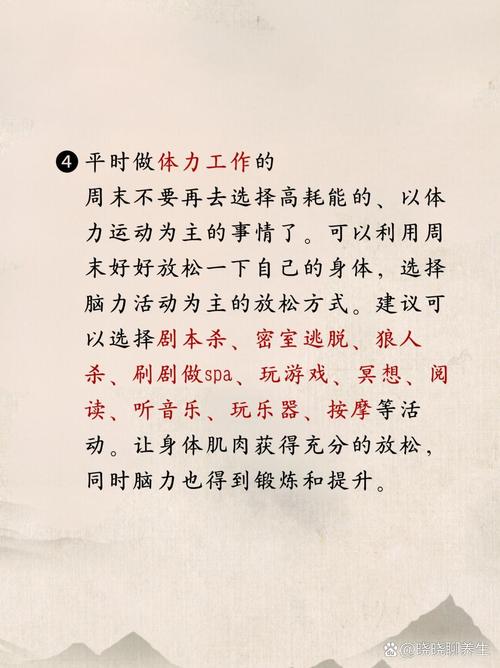 ❹平时做体力工作的
周末不要再去选择高耗能的、以体
力运动为主的事情了。可以利用周
末好好放松一下自己的身体，选择
脑力活动为主的放松方式。建议可
以选择剧本杀、密室逃脱、狼人
杀、刷剧做spa、玩游戏、冥想、阅
读、听音乐、玩乐器、按摩等活
动。让身体肌肉获得充分的放松，
同时脑力也得到锻炼和提升。
@晓晓聊养生